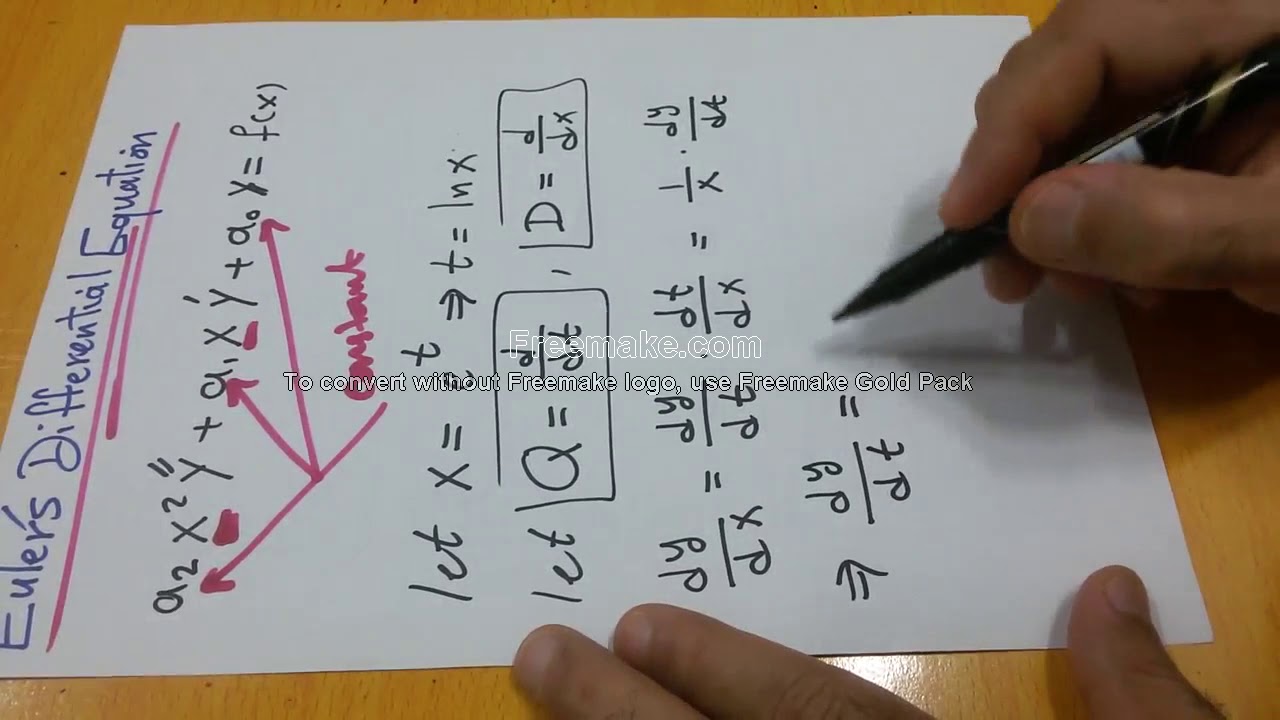 Euler's Differential Equation
a₂x²y'' + a₁xy' + a₀y = f(x)
constant
let x = eᵗ ⇒ t = ln x
let Q = d/dt , D = d/dx
dy/dx = dy/dt · dt/dx = 1/x · dy/dt
⇒ dy/dt =
Freemake.com
To convert without Freemake logo, use Freemake Gold Pack